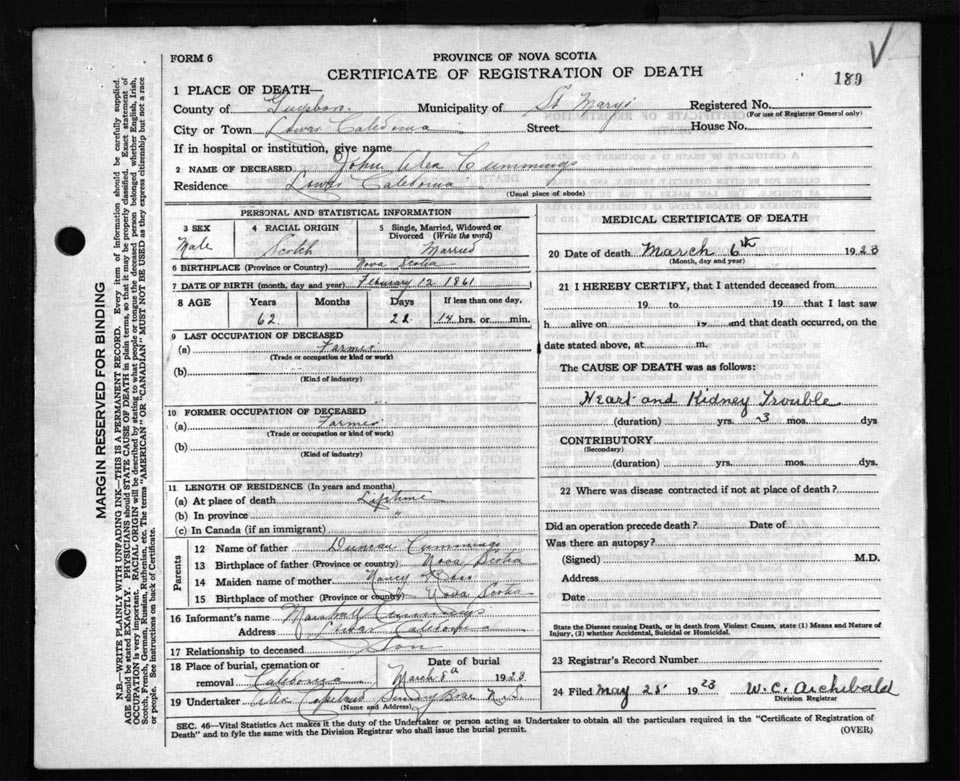 FORM 6
PROVINCE OF NOVA SCOTIA
CERTIFICATE OF REGISTRATION OF DEATH
189
1 PLACE OF DEATH—
County of Guysboro Municipality of St Marys Registered No.
(For use of Registrar General only)
City or Town Lower Caledonia Street House No.
If in hospital or institution, give name
2 NAME OF DECEASED John Alex Cummings
Residence Lower Caledonia
(Usual place of abode)
PERSONAL AND STATISTICAL INFORMATION
3 SEX 4 RACIAL ORIGIN 5 Single, Married, Widowed or Divorced (Write the word)
Male Scotch Married
6 BIRTHPLACE (Province or Country) Nova Scotia
7 DATE OF BIRTH (month, day and year) Feburary 12 1861
8 AGE Years Months Days If less than one day,
62 22 14 hrs. or min.
9 LAST OCCUPATION OF DECEASED
(a) Farmer
(Trade or occupation or kind or work)
(b)
(Kind of industry)
10 FORMER OCCUPATION OF DECEASED
(a) Farmer
(Trade or occupation or kind of work)
(b)
(Kind of industry)
11 LENGTH OF RESIDENCE (In years and months)
(a) At place of death Liftime
(b) In province "
(c) In Canada (if an immigrant)
Parents
12 Name of father Duncan Cummings
13 Birthplace of father (Province or country) Nova Scotia
14 Maiden name of mother Nancy Ross
15 Birthplace of mother (Province or country) Nova Scotia
16 Informant's name Marshall Cummings
Address Lower Caledonia
17 Relationship to deceased Son
18 Place of burial, cremation or removal Caledonia Date of burial March 8 1923
19 Undertaker Alex Copeland Sunny Brae N.S.
(Name and Address)
MEDICAL CERTIFICATE OF DEATH
20 Date of death March 6th 1923
(Month, day and year)
21 I HEREBY CERTIFY, that I attended deceased from
19 to 19 that I last saw
h alive on 19 and that death occurred, on the
date stated above, at m.
The CAUSE OF DEATH was as follows:
Heart and Kidney Trouble
(duration) yrs. 3 mos. dys
CONTRIBUTORY
(Secondary)
(duration) yrs. mos. dys.
22 Where was disease contracted if not at place of death?
Did an operation precede death? Date of
Was there an autopsy?
(Signed) M.D.
Address
Date
State the Disease causing Death, or in death from Violent Causes, state (1) Means and Nature of
Injury, (2) whether Accidental, Suicidal or Homicidal.
23 Registrar's Record Number
24 Filed May 25 1923 W. C. Archibald
Division Registrar
SEC. 46—Vital Statistics Act makes it the duty of the Undertaker or person acting as Undertaker to obtain all the particulars required in the "Certificate of Registration of
Death" and to fyle the same with the Division Registrar who shall issue the burial permit.
(OVER)
MARGIN RESERVED FOR BINDING
N.B.—WRITE PLAINLY WITH UNFADING INK.—THIS IS A PERMANENT RECORD. Every item of information should be carefully supplied.
AGE should be stated EXACTLY. PHYSICIANS should STATE CAUSE OF DEATH in plain terms, so that it may be properly classified. Exact statement of
OCCUPATION is very important. RACIAL ORIGIN will be described by stating to what people or tongue the deceased person belonged whether English, Irish,
Scotch, French, German, Russian, Ruthenian, etc. The terms "AMERICAN" OR "CANADIAN" MUST NOT BE USED as they express citizenship but not a race
or people. See instructions on back of Certificate.